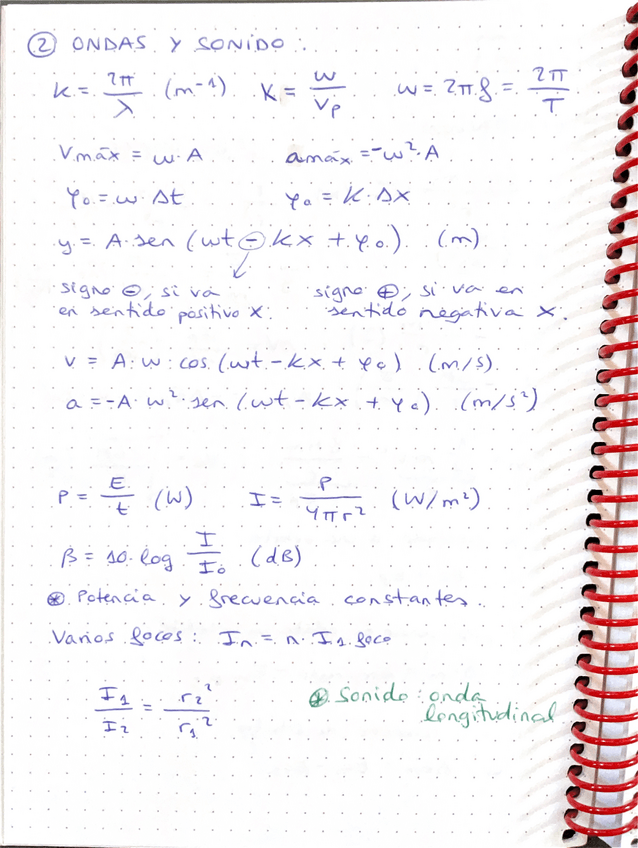 ② ONDAS Y SONIDO:
K = 2π/λ (m⁻¹) K = w/Vp w = 2π·f = 2π/T
Vmáx = w·A amáx = -w²·A
φ₀ = w·Δt φ₀ = K·Δx
y = A·sen (wt ⊖ kx + φ₀) (m)
signo ⊖, si va signo ⊕, si va en
en sentido positivo X. sentido negativa X.
v = A·w·cos (wt - kx + φ₀) (m/s)
a = -A·w²·sen (wt - kx + φ₀) (m/s²)
P = E/t (W) I = P/4πr² (W/m²)
β = 10·log I/I₀ (dB)
⊛ Potencia y frecuencia constantes.
Varios focos: Iₙ = n·I₁ foco
I₁/I₂ = r₂²/r₁² ⊛ Sonido: onda
longitudinal